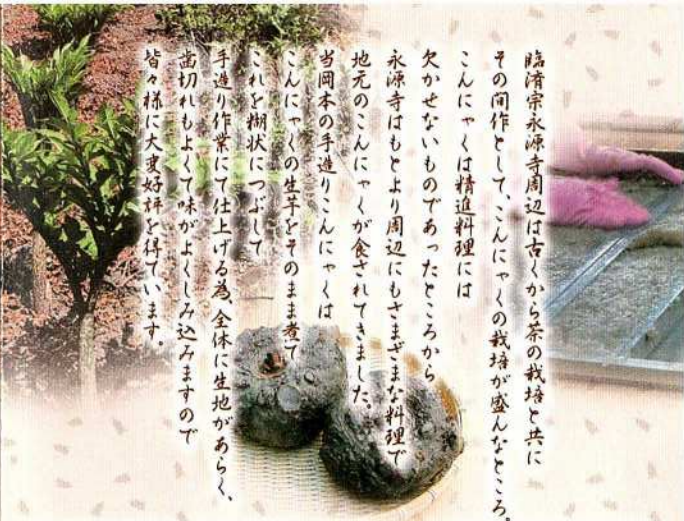 臨済宗永源寺周辺は古くから茶の栽培と共に
その間作として、こんにゃくの栽培が盛んなところ。
こんにゃくは精進料理には
欠かせないものであったところから
永源寺はもとより周辺にもさまざまな料理で
地元のこんにゃくが食されてきました。
当岡本の手造りこんにゃくは
こんにゃくの生芋をそのまま煮て
これを糊状につぶして
手造り作業にて仕上げる為、全体に生地があらく、
歯切れもよくて味がよくしみ込みますので
皆々様に大変好評を得ています。